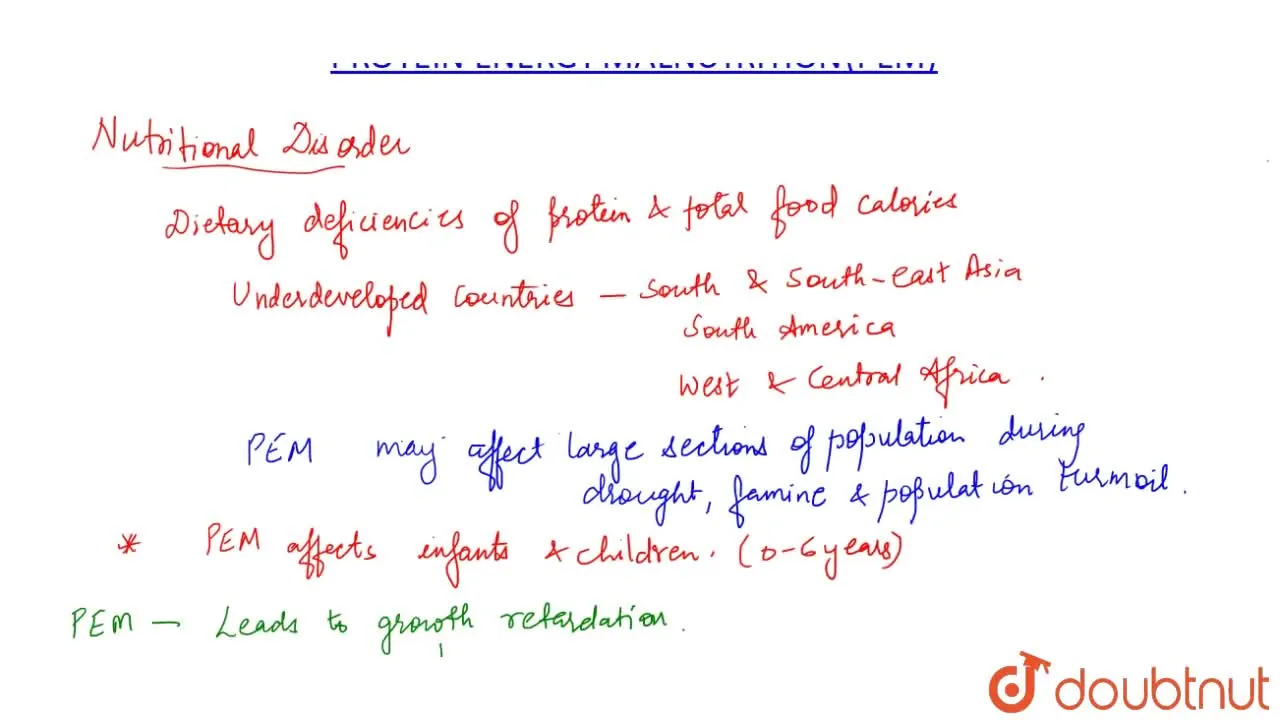 PROTEIN ENERGY MALNUTRITION(PEM)
Nutritional Disorder
Dietary deficiencies of protein & total food calories
Underdeveloped Countries — South & South-east Asia
South America
West & Central Africa.
PEM may affect large sections of population during
drought, famine & population turmoil.
* PEM affects infants & children. (0-6years)
PEM — Leads to growth retardation.
doubtnut